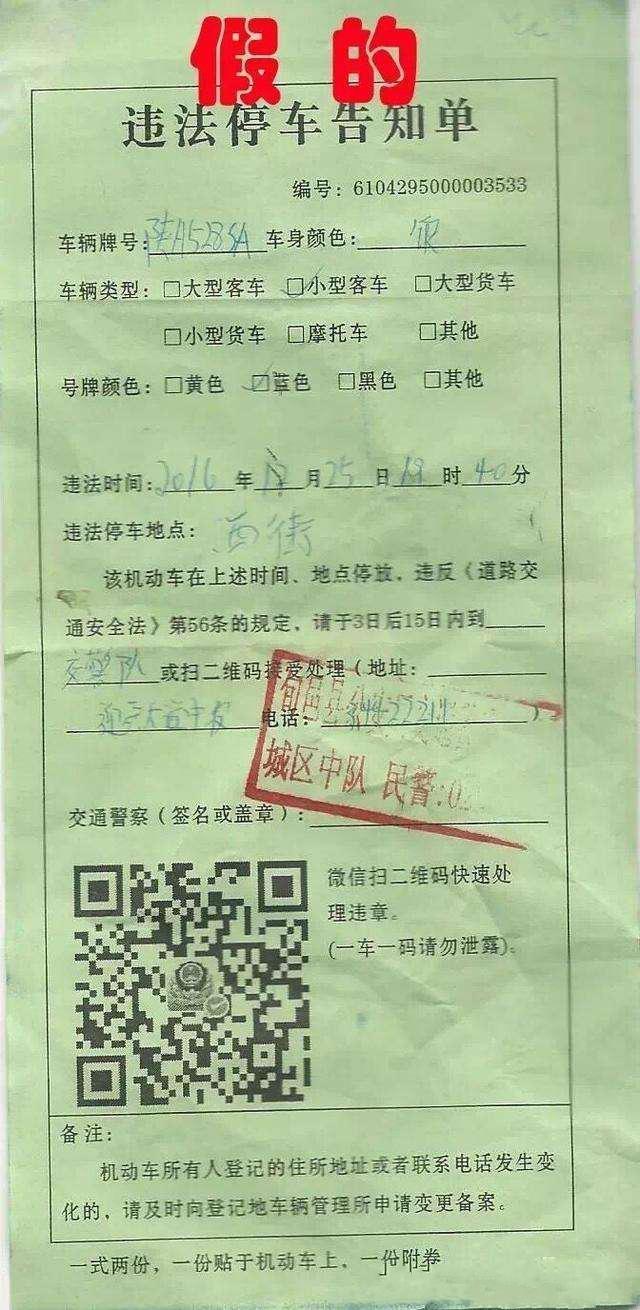 假的
违法停车告知单
编号：6104295000003533
车辆牌号：陕A528SA 车身颜色：银
车辆类型：□大型客车 ☑小型客车 □大型货车
□小型货车 □摩托车 □其他
号牌颜色：□黄色 ☑蓝色 □黑色 □其他
违法时间：2016年12月25日19时40分
违法停车地点：西街
该机动车在上述时间、地点停放，违反《道路交
通安全法》第56条的规定，请于3日后15日内到
交警队或扫二维码接受处理（地址：
电话：）
旬邑县
城区中队 民警：
交通警察（签名或盖章）：
微信扫二维码快速处
理违章。
(一车一码请勿泄露)。
备注：
机动车所有人登记的住所地址或者联系电话发生变
化的，请及时向登记地车辆管理所申请变更备案。
一式两份，一份贴于机动车上，一份附卷